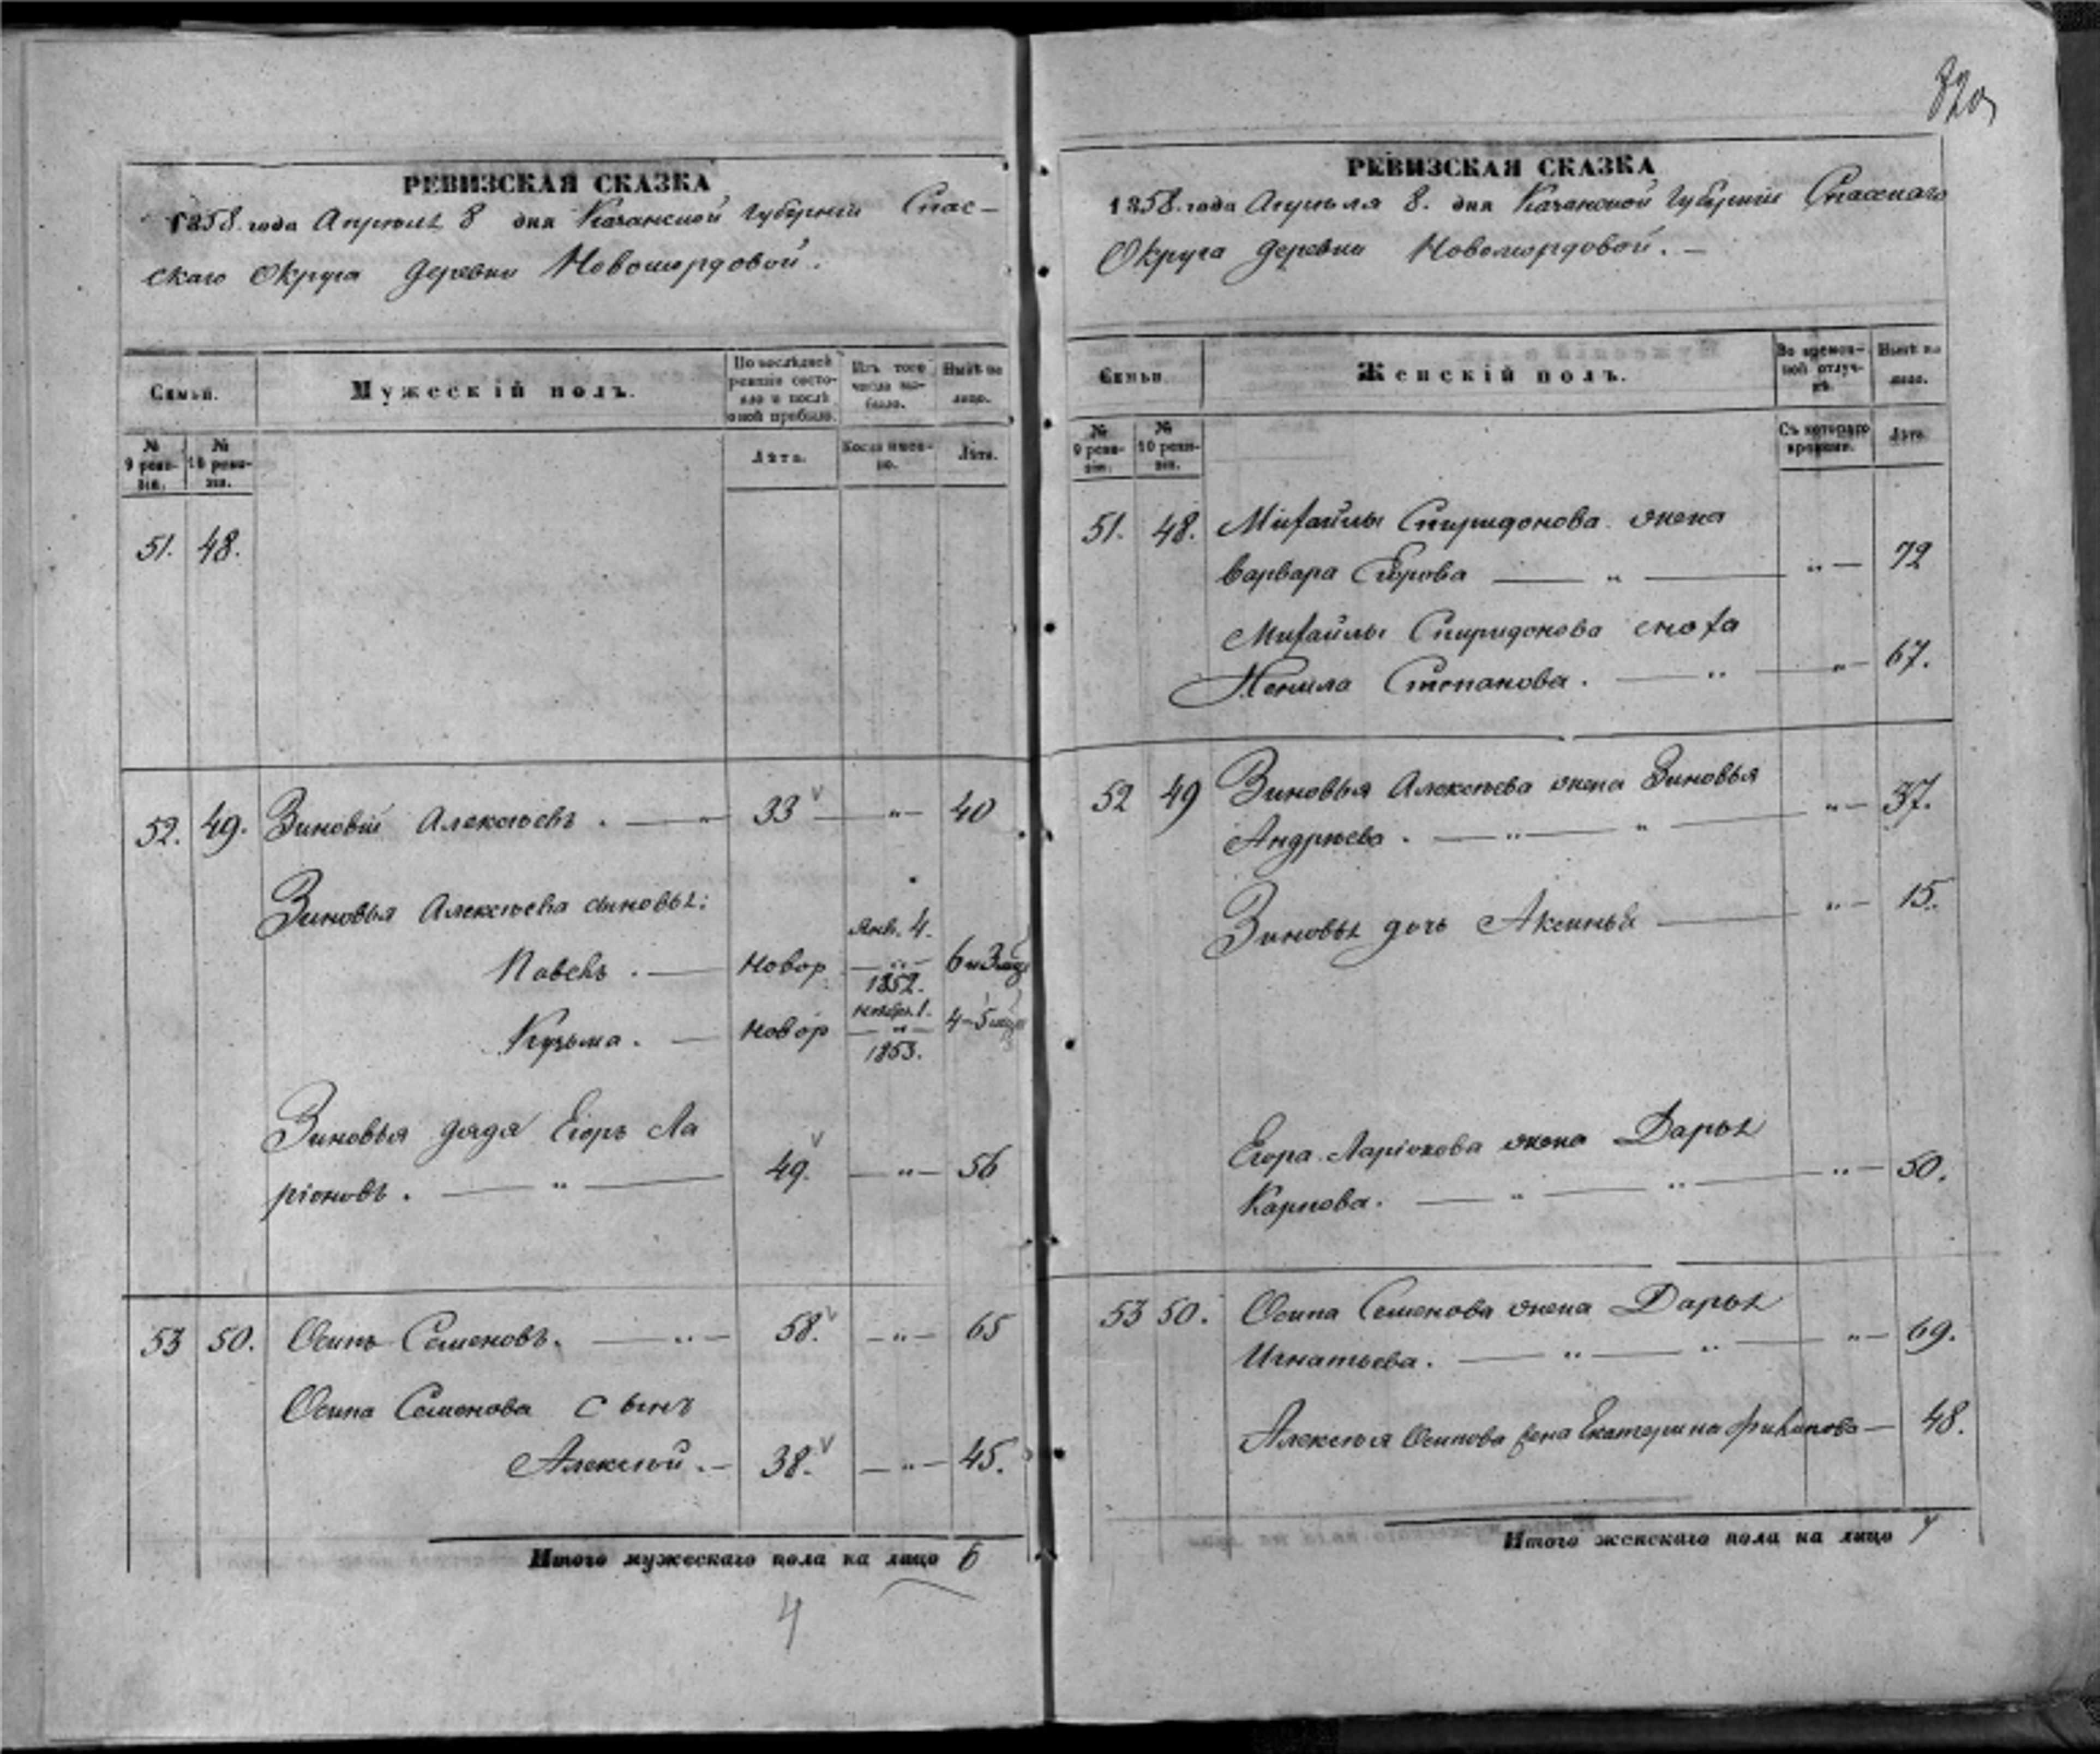 820
РЕВИЗСКАЯ СКАЗКА
1858. года Апрѣля 8 дня Казанской губерніи Спас-
скаго Округа деревни Новомордовой.
Семьи.
Мужескій полъ.
По послѣдней ревизіи состояло и послѣ оной прибыло.
Изъ того числа выбыло.
Нынѣ на лицо.
№ 9 ревизіи.
№ 10 ревизіи.
Лѣта.
Когда именно.
Лѣта.
51. 48.
52. 49. Зиновій Алексѣевъ. — „ 33 — „ — 40
Зиновья Алексѣева сыновья:
Янв. 4.
Павелъ. — новор — „ — 6 и 3 мѣс
1852.
ноябр. 1.
Кузьма. — новор — „ — 4-5 мѣс
1853.
Зиновья дядя Егоръ Ла
ріоновъ. — „ — 49. — „ — 56
53 50. Осипъ Семеновъ. — „ — 58. — „ — 65
Осипа Семенова сынъ
Алексѣй. — 38. — „ — 45.
Итого мужескаго пола на лицо 6
4
РЕВИЗСКАЯ СКАЗКА
1858. года Апрѣля 8. дня Казанской Губерніи Спасскаго
Округа деревни Новомордовой. —
Семьи.
Женскій полъ.
Во временной отлучкѣ.
Нынѣ на лицо.
№ 9 ревизіи.
№ 10 ревизіи.
Съ котораго времени.
Лѣта.
51. 48. Михайлы Спиридонова жена
Варвара Егорова — „ — „ — 72
Михайлы Спиридонова сноха
Ненила Степанова. — „ — „ — 67.
52 49 Зиновья Алексѣева жена Зиновья
Андрѣева. — „ — „ — „ — 37.
Зиновья дочь Аксинья — „ — 15.
Егора Ларіонова жена Дарья
Карпова. — „ — „ — „ — 50.
53 50. Осипа Семенова жена Дарья
Игнатьева. — „ — „ — „ — 69.
Алексѣя Осипова жена Екатерина Филипова — 48.
Итого женскаго пола на лицо 7